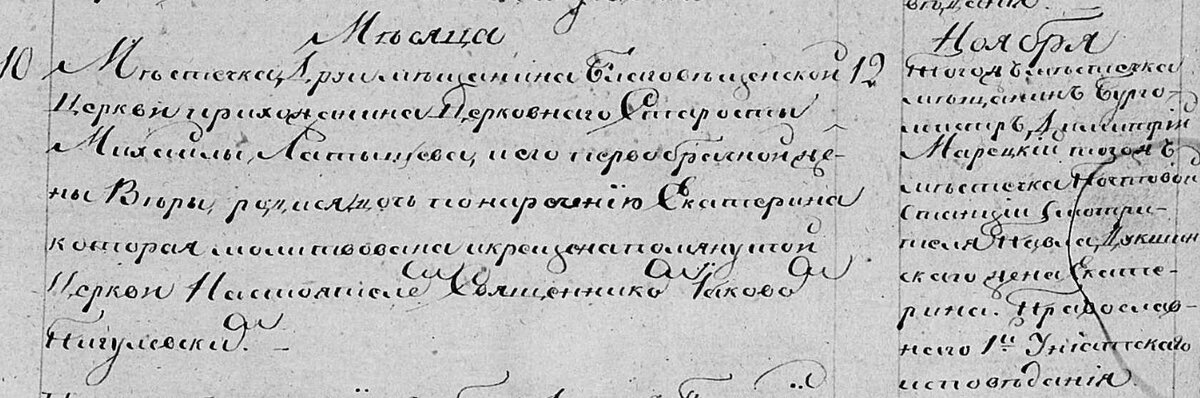 вѣданія.
Мѣсяца
Ноября
10 Мѣстечка, Друи мѣщанина Благовѣщенской
Церкви прихожанина Церковнаго Старосты
Михайлы, Латышева, и его первобрачной же-
ны Вѣры, родися дочь по нареченїю Екатерина
которая молитвована и крещена помянутой
Церкви Настоятеле^м Священнико^м Іаково^м
Пигулевски^м. –
12 тогожъ мѣстечка
мѣщанинъ Бурго-
мистръ, Димитрій
Марецкій тогожъ
мѣстечка Почтовой
станціи Смотри-
теля Павла, Дукшин
скаго жена Екате-
рина. Православ-
наго 1й Уніатскаго
исповѣданія.